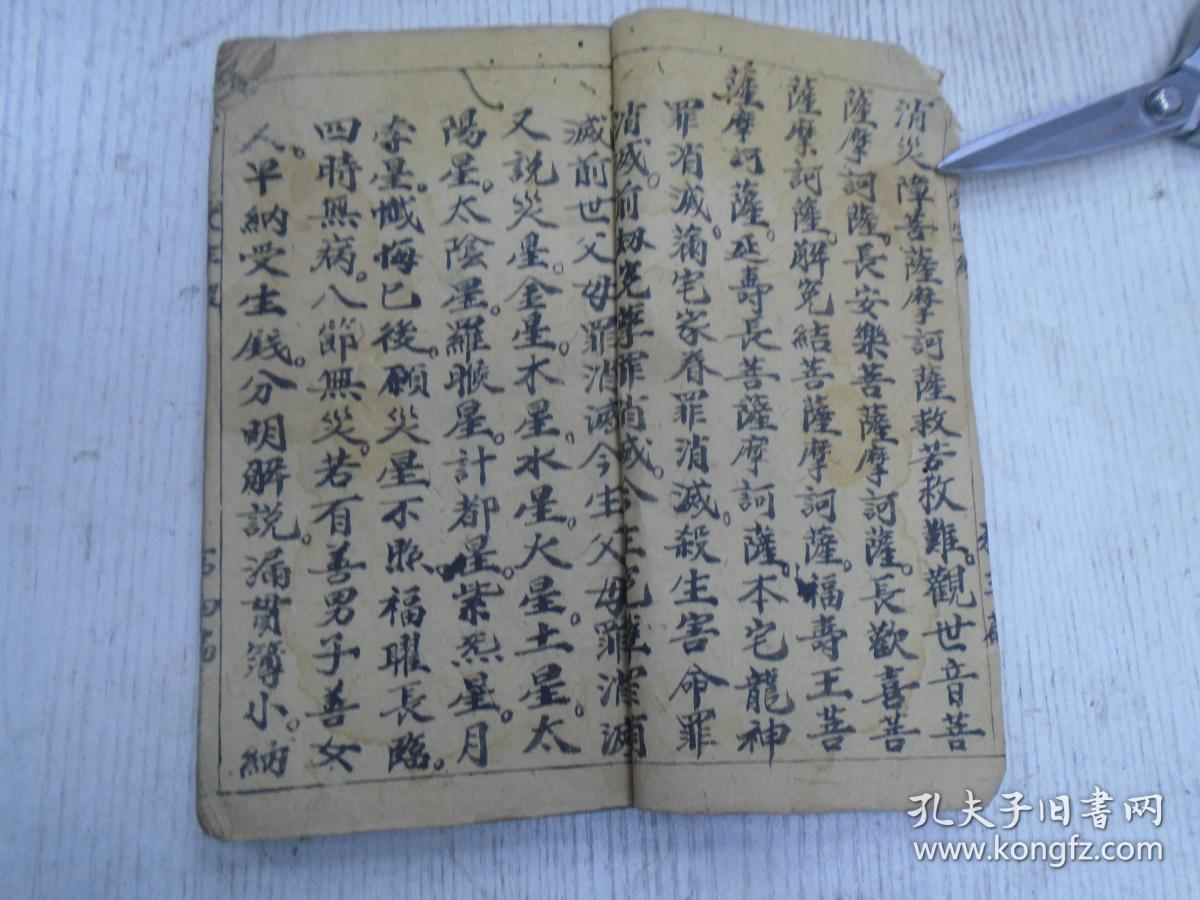 消災障菩薩摩訶薩救苦救難。觀世音菩
薩摩訶薩。長安樂菩薩摩訶薩。長歡喜菩
薩摩訶薩。解冤結菩薩摩訶薩。福壽王菩
薩摩訶薩。延壽長菩薩摩訶薩。本宅龍神
罪消滅。蒲宅家眷罪消滅。殺生害命罪
消滅。前劫冤孽罪消滅。今生冤罪消滅
滅前世父母罪消滅今生父母罪消滅
又說災星。金星。木星。水星。火星。土星。太
陽星。太陰星。羅睺星。計都星。紫炁星。月
孛星。懺悔已後。願災星不照。福曜長臨。
四時無病。八節無災。若有善男子善女
人。早納受生錢。分明解說。漏貫簿小。納
孔夫子旧书网
www.kongfz.com